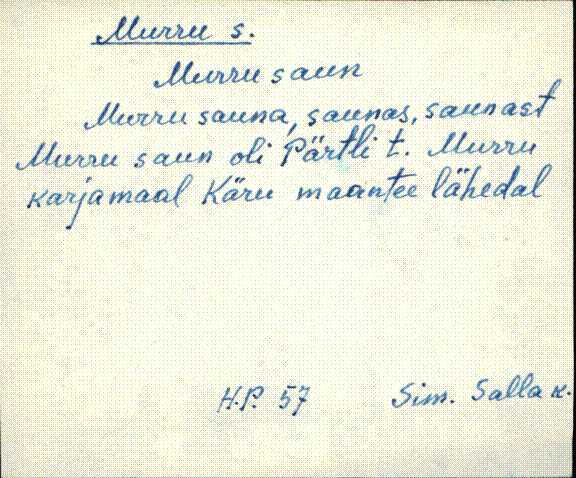 Murru s.
Murru saun
Murru sauna, saunas, saunast
Murru saun oli Pärtli t. Murru
karjamaal Käru maantee lähedal
H.P. 57 Sim. Salla k.